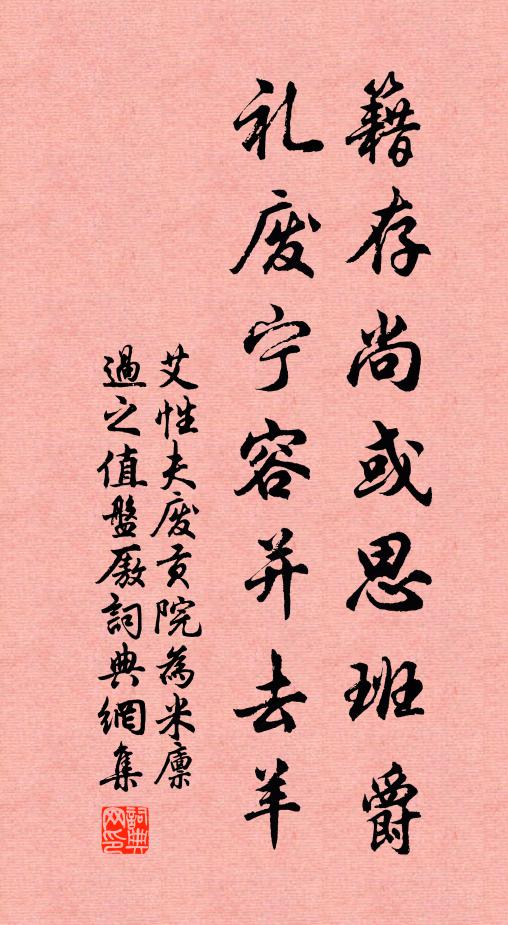 籍存尚或思班爵
礼废宁容并去羊
艾性夫废贡院為米廪
過之值盤厫詞典網集
詞典网印